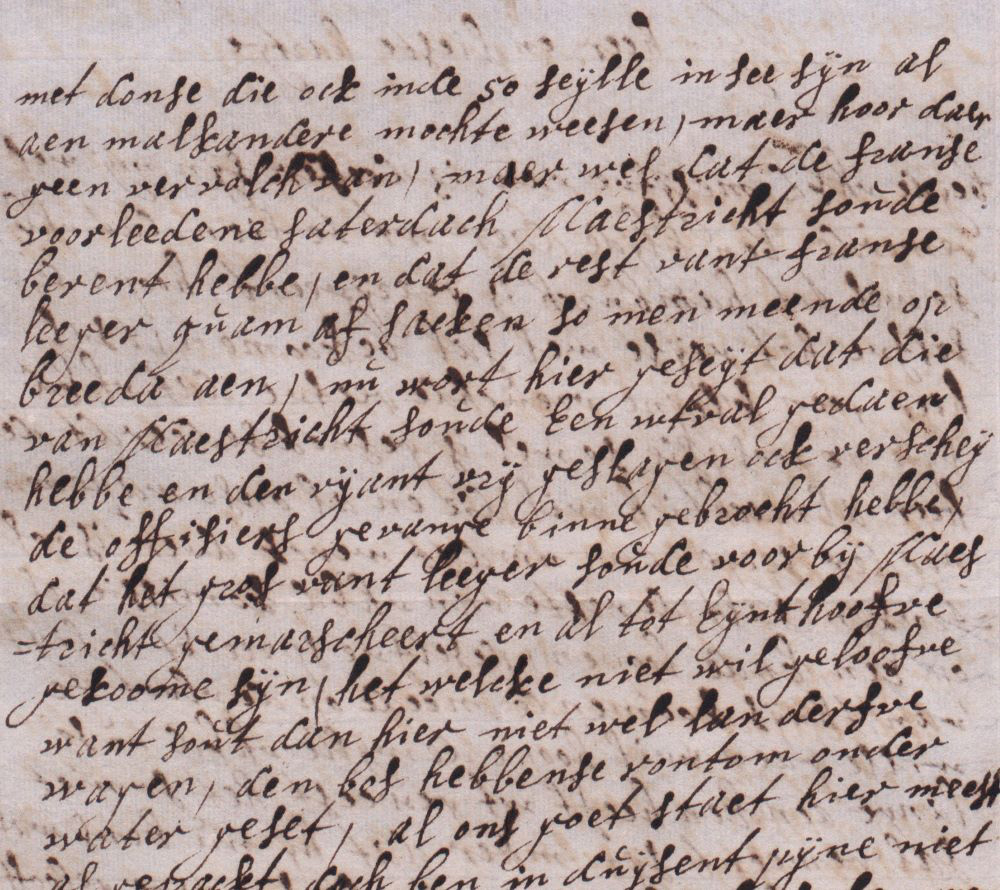 met donse die ock inde 50 seijlle in see sijn al
aen malkandere mochte weesen, maer hoor daer
geen vervolch van, maer wel dat de franse
voorleedene saterdach Maestricht soude
berent hebbe, en dat de rest vant franse
leeger quam af sacken so men meende op
breeda aen, nu wort hier geseijt dat die
van Maestricht soude een utval gedaen
hebbe en den vijant vrij geslagen ock verscheij
de offisiers gevange binne gebrocht hebbe,
dat het gros vant leeger soude voor bij Maes
=tricht gemarscheert en al tot Eijnthoofve
gekoome sijn, het welcke niet wil geloofve
want sout dan hier niet wel lan derfve
wagen, den bos hebbense rontom onder
water geset, al ons goet staet hier meest
al gepackt doch ben in duijsent pijne niet